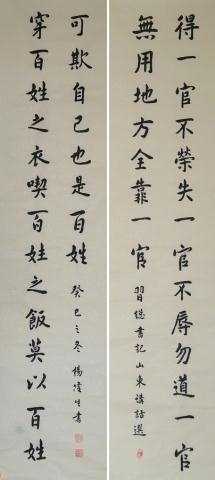 得一官不榮失一官不辱勿道一官
無用地方全靠一官
習總書記山東講話選
穿百姓之衣喫百姓之飯莫以百姓
可欺自己也是百姓
癸巳之冬楊凌生書